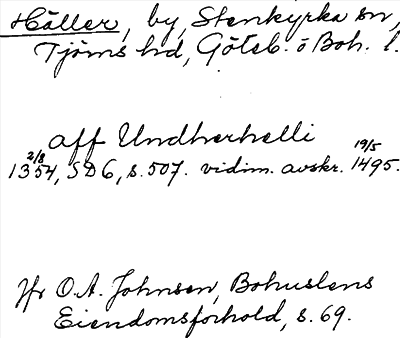 Häller, by, Stenkyrka sn,
Tjörns hd, Göteb. o Boh. l.
aff Undherhelli
2/8 1354, SD 6, s. 507. vidim. avskr. 19/5 1495.
Jfr O.A. Johnsen, Bohuslens
Eiendomsforhold, s. 69.